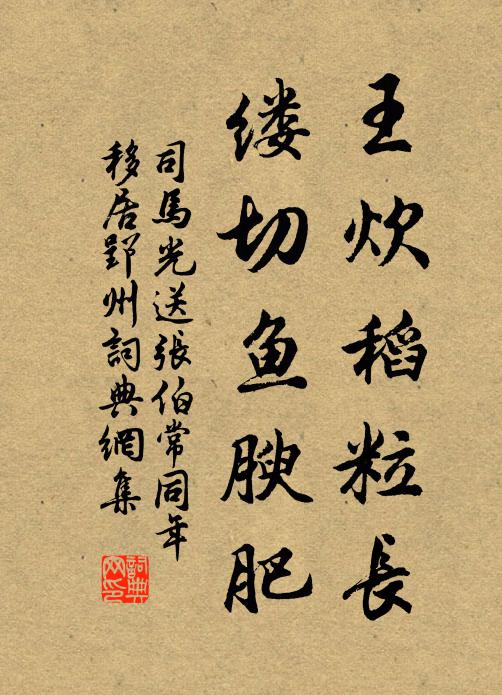 王炊稻粒長
缕切鱼腴肥
司馬光送張伯常同年
移居郢州詞典網集
詞典网印